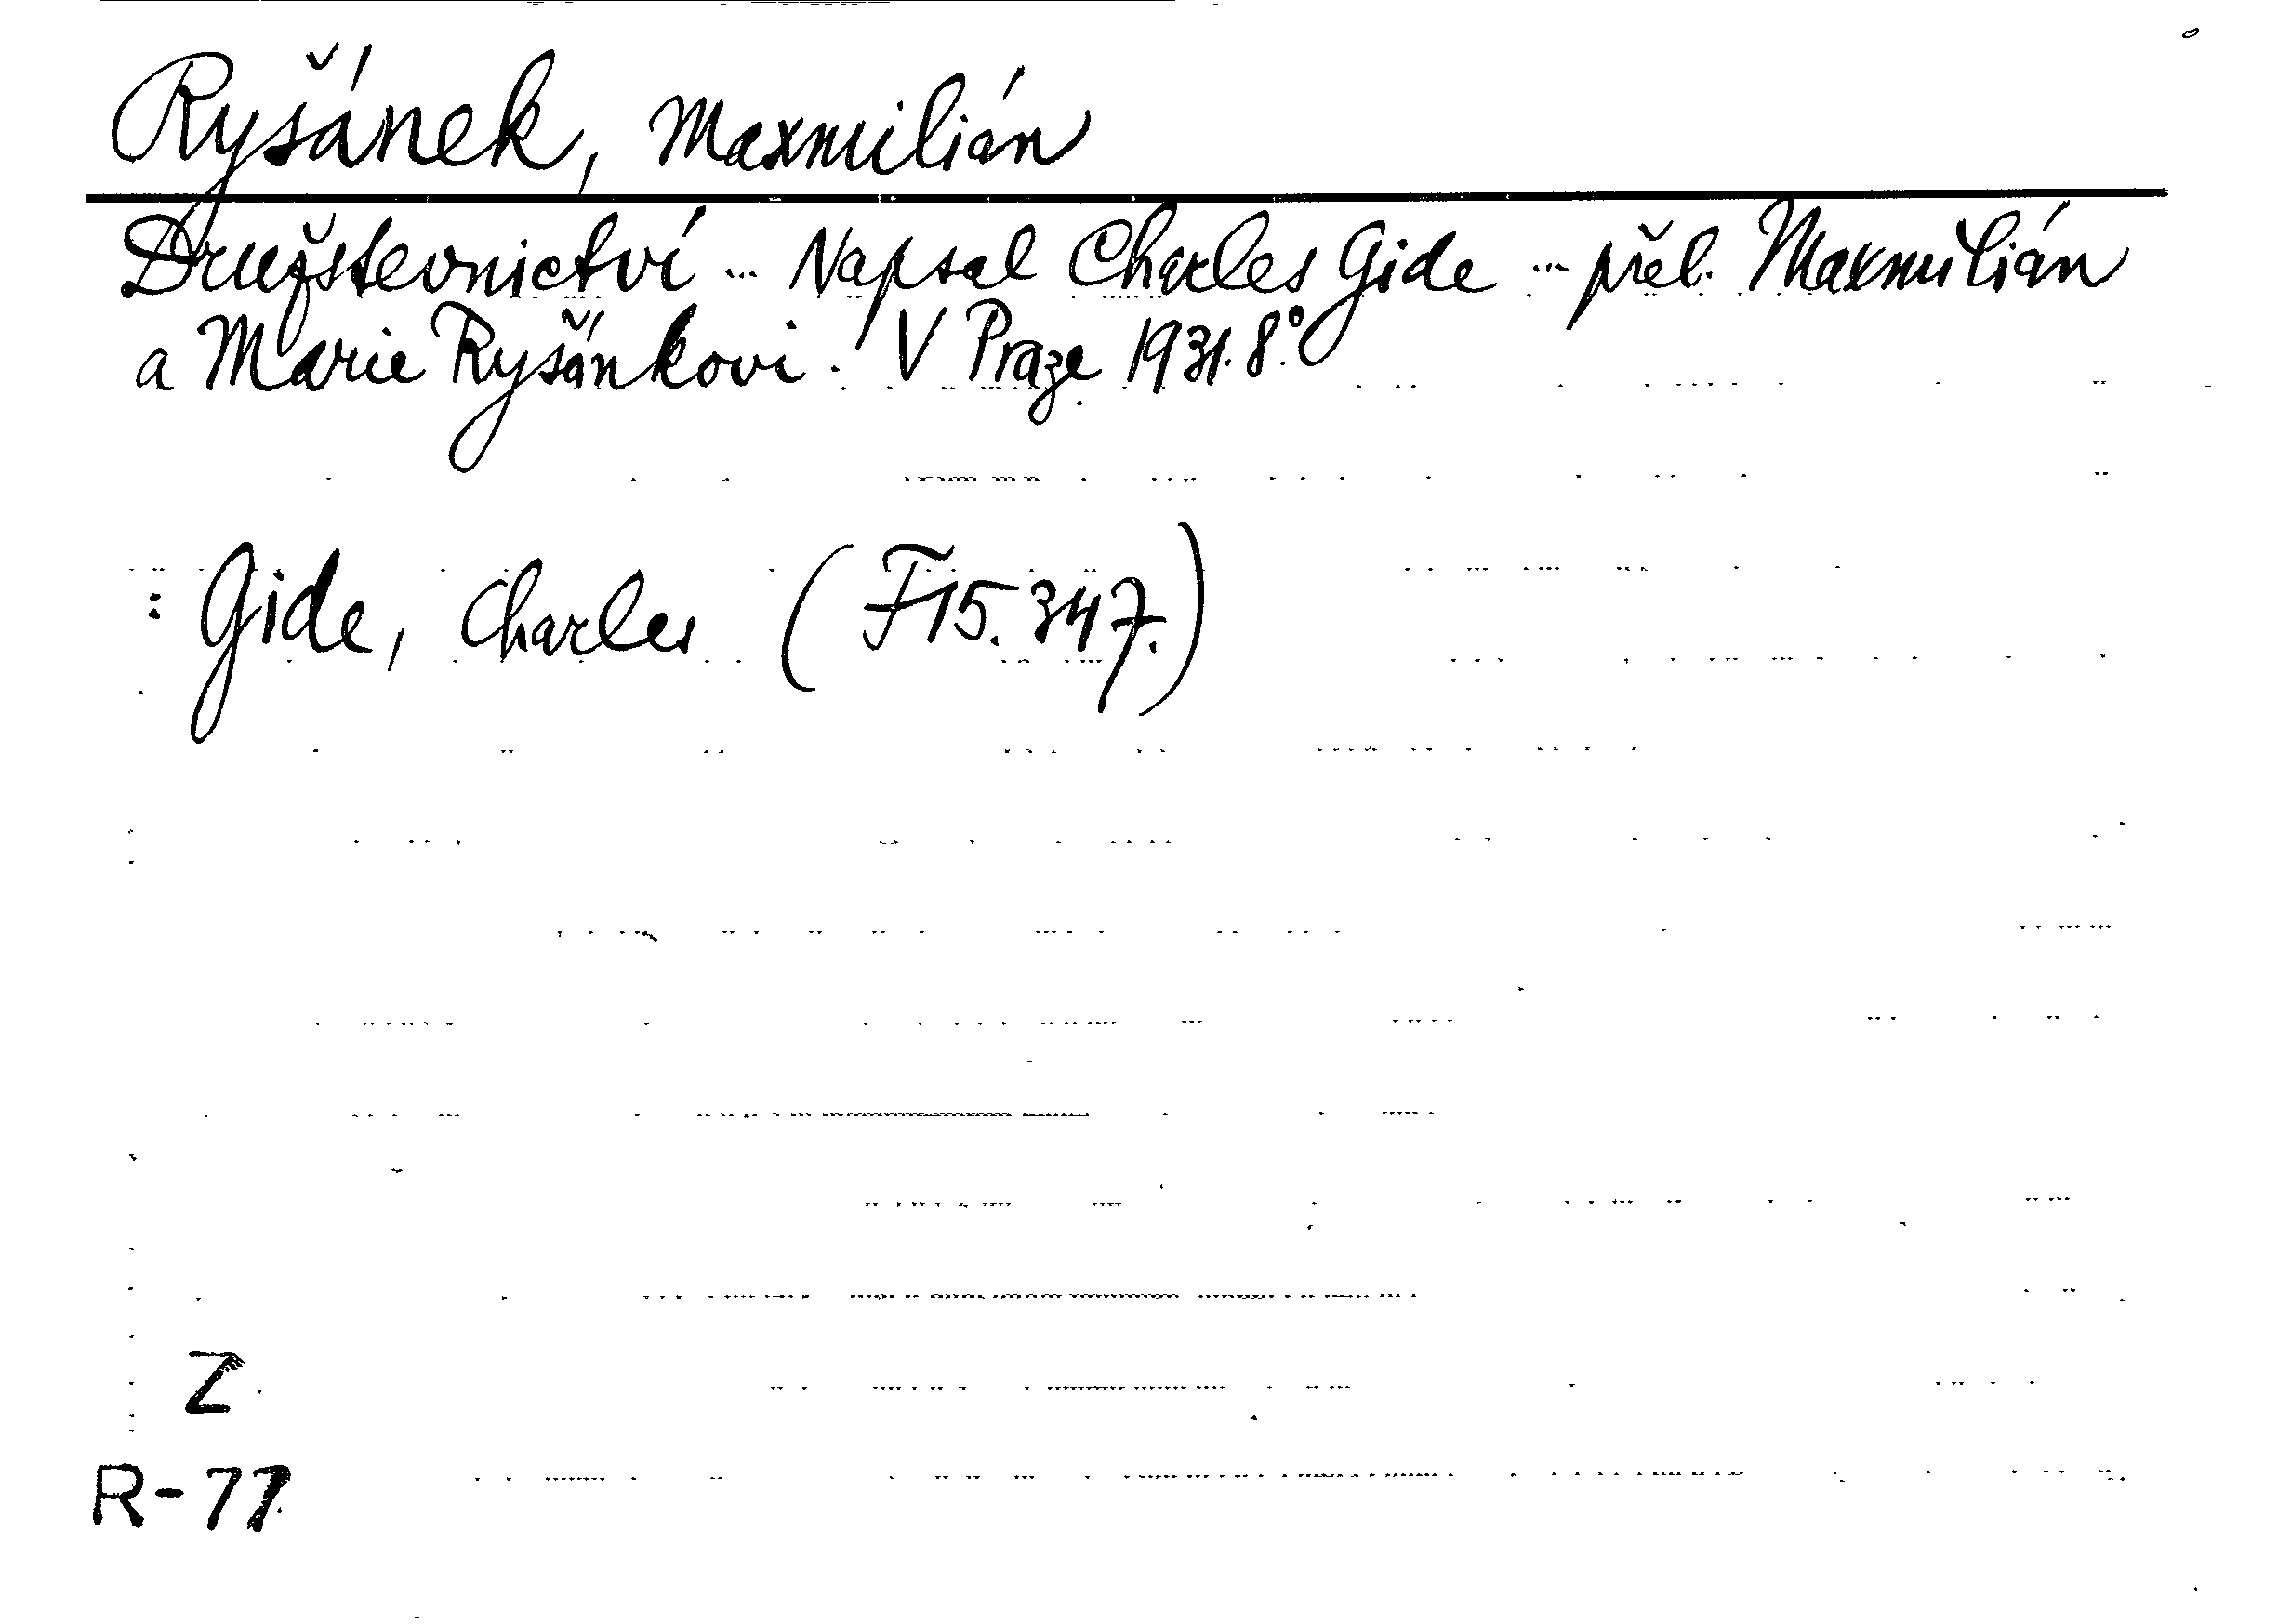 Ryšánek, Maxmilián
Družstevnictví ... Napsal Charles Gide ... přel. Maxmilián
a Marie Ryšánkovi. V Praze 1931. 8.°
: Gide, Charles (F 15.347.)
Z
R-77